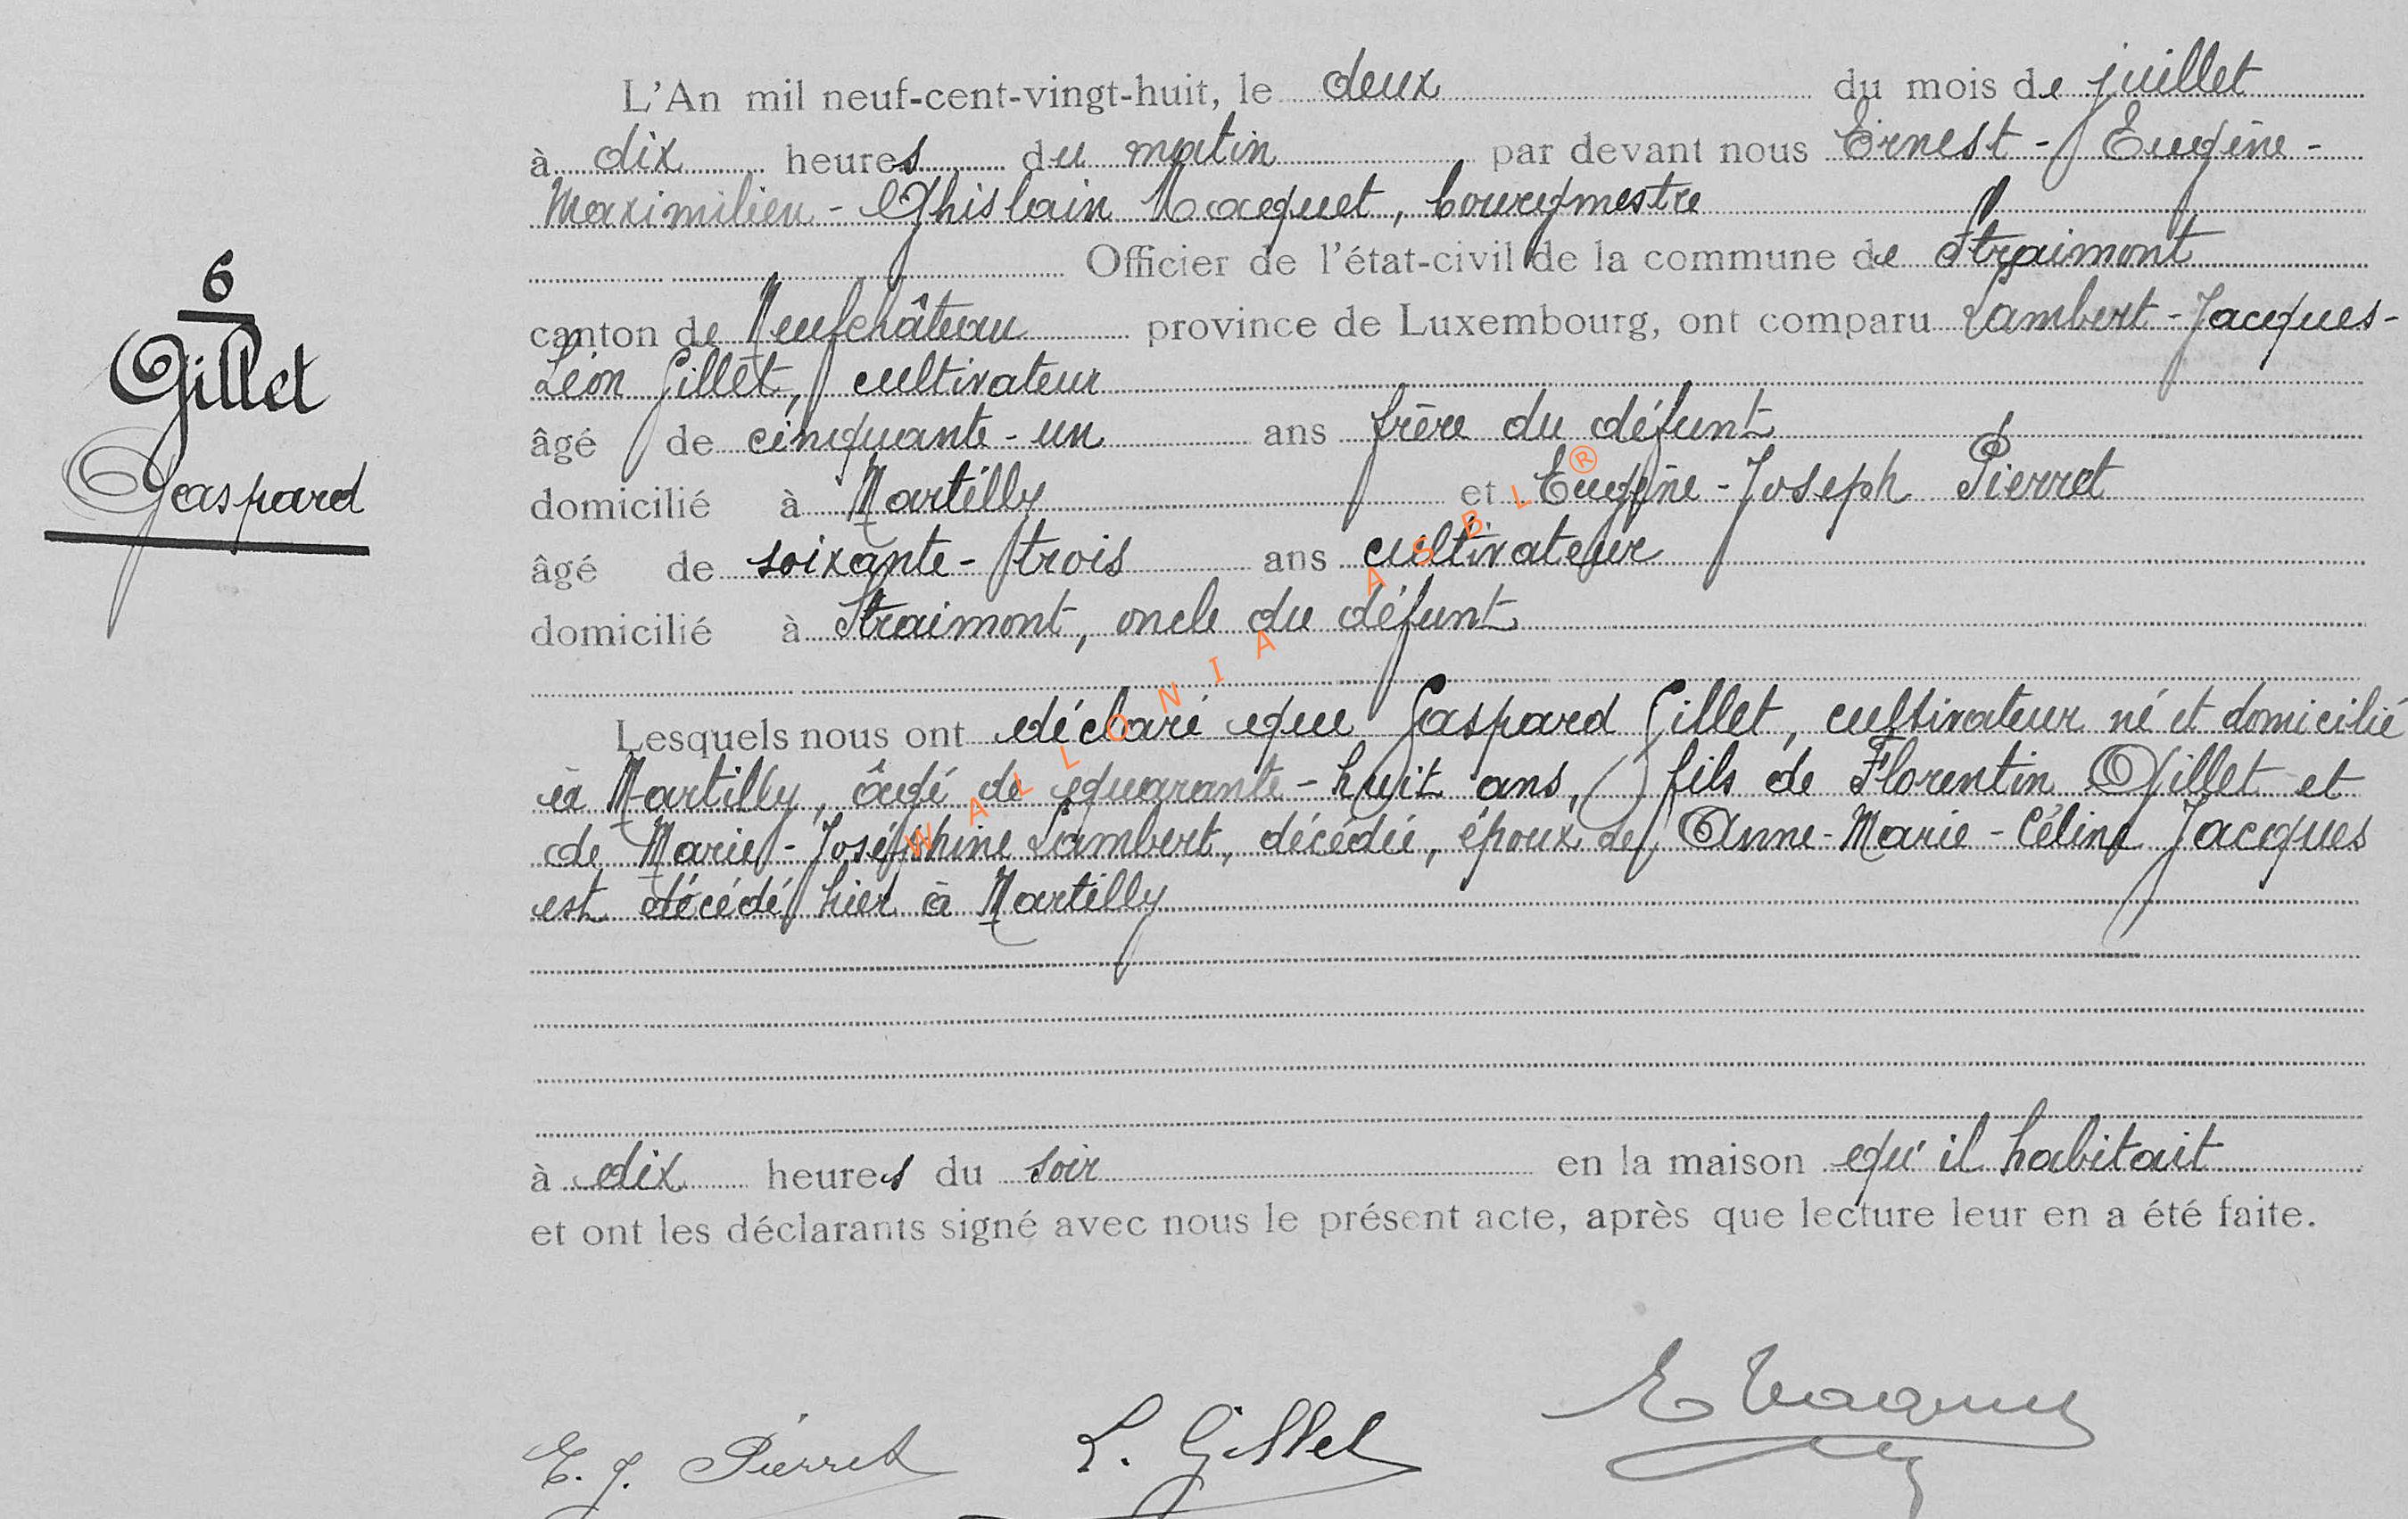 6
Gillet
Gaspard
L'An mil neuf-cent-vingt-huit, le deux du mois de juillet
à dix heures du matin par devant nous Ernest - Eugène -
Maximilien - Ghislain Macquet, bourgmestre
Officier de l'état-civil de la commune de Straimont
canton de Neufchâteau province de Luxembourg, ont comparu Lambert - Jacques -
Léon Gillet, cultivateur
âgé de cinquante - un ans frère du défunt
domicilié à Martilly et Eugène - Joseph Pierret
âgé de soixante - trois ans cultivateur
domicilié à Straimont, oncle du défunt
Lesquels nous ont déclaré que Gaspard Gillet, cultivateur né et domicilié
à Martilly, âgé de quarante - huit ans, fils de Florentin Gillet et
de Marie - Joséphine Lambert, décédée, époux de Anne - Marie - Céline Jacques
est décédé hier à Martilly
à dix heures du soir en la maison qu'il habitait
et ont les déclarants signé avec nous le présent acte, après que lecture leur en a été faite.
E. J. Pierret L. Gillet E Macquet
WALLONIA ASBL ®